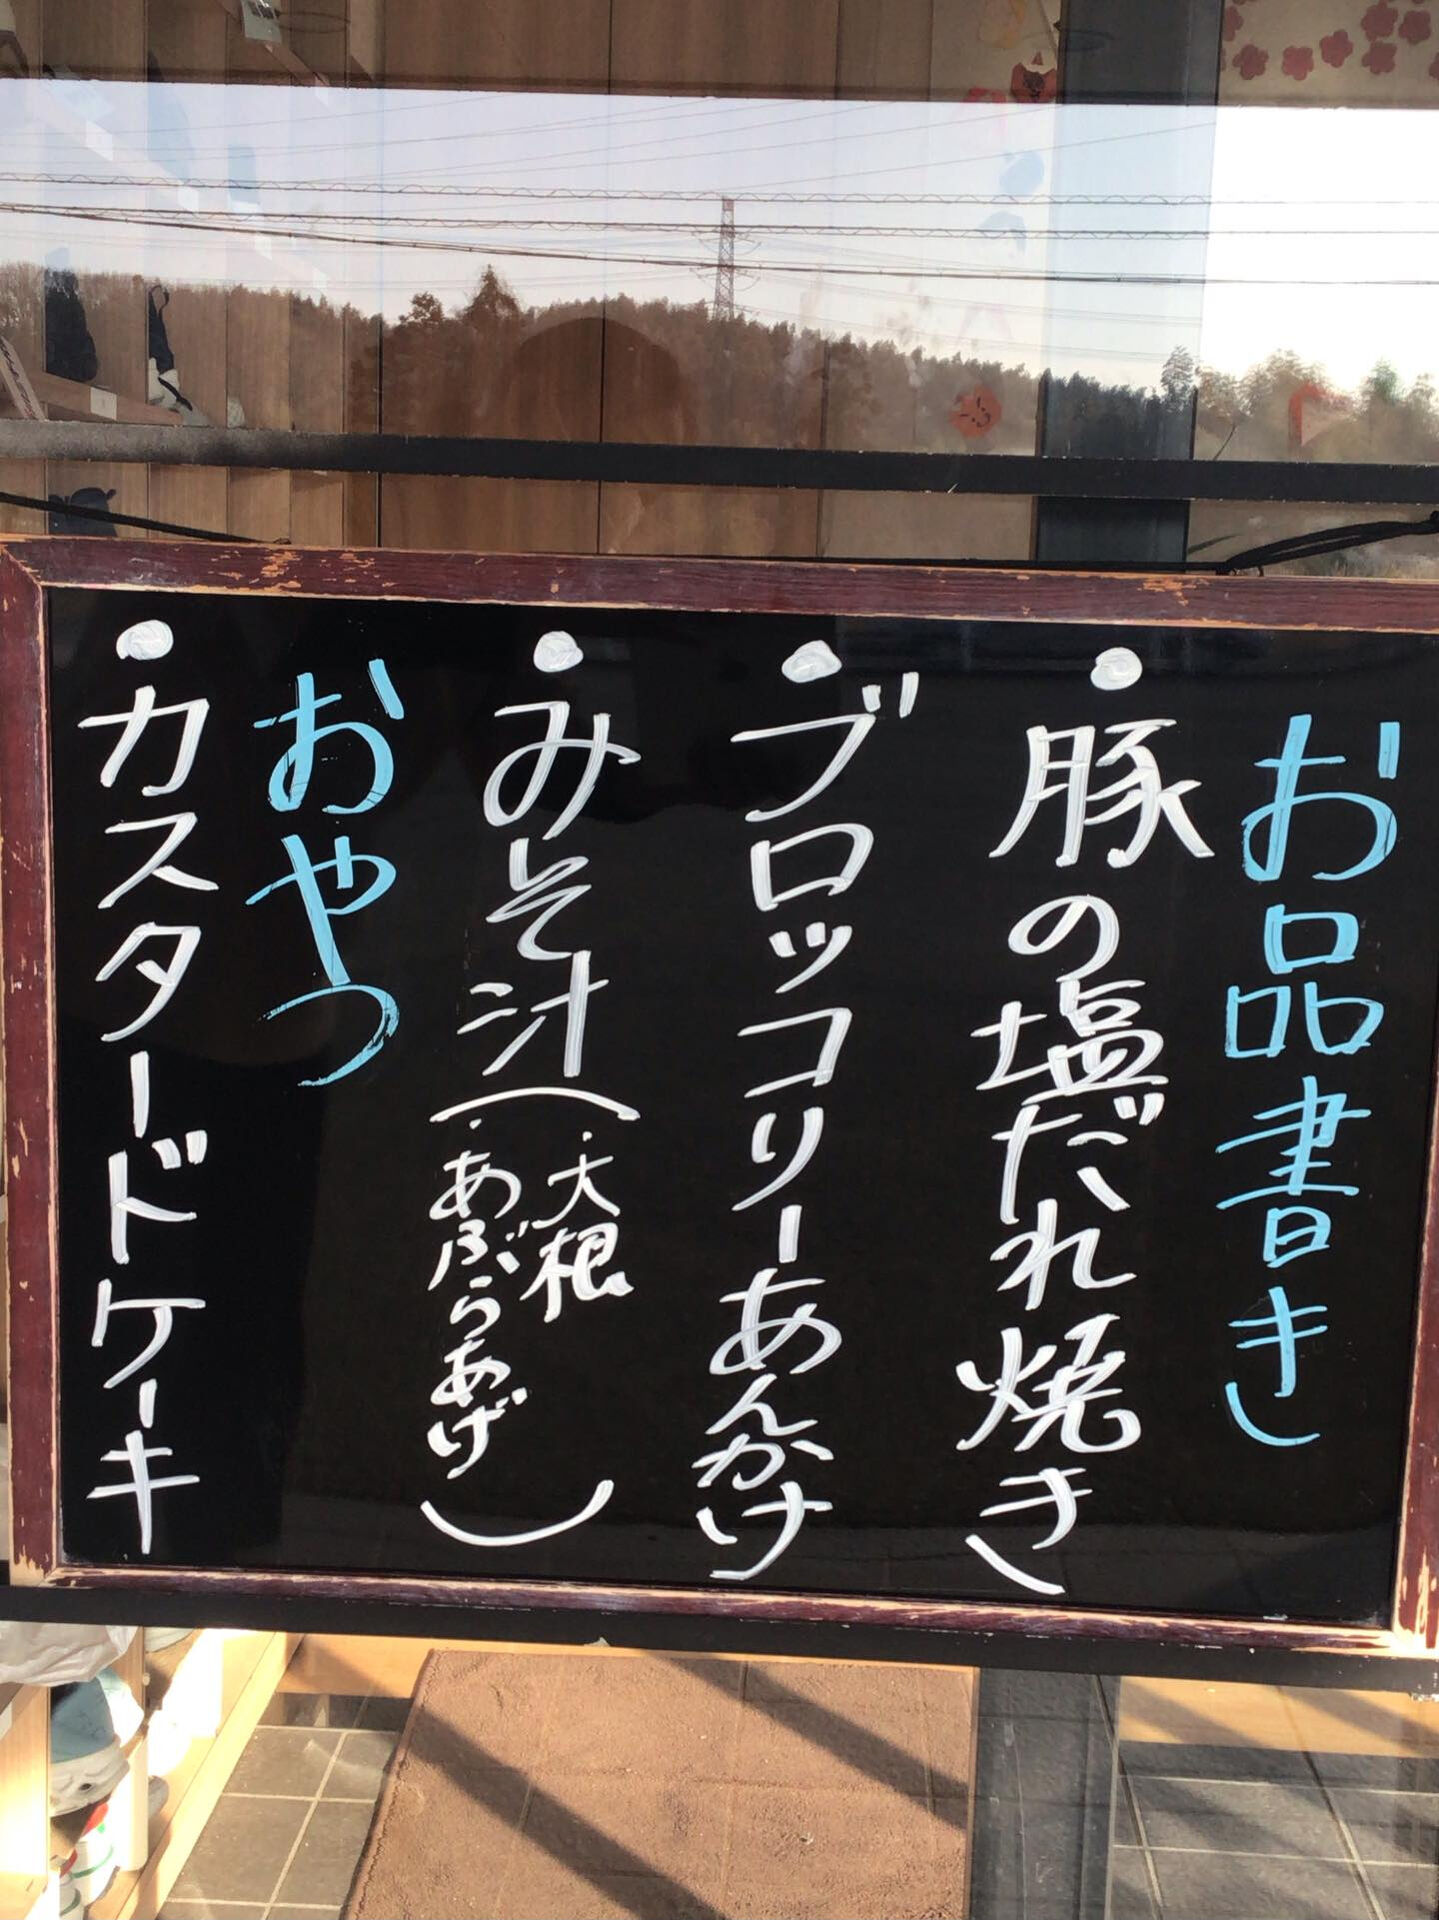 お品書き
・豚の塩だれ焼き
・ブロッコリーあんかけ
・みそ汁(・大根
・あぶらあげ)
おやつ
・カスタードケーキ